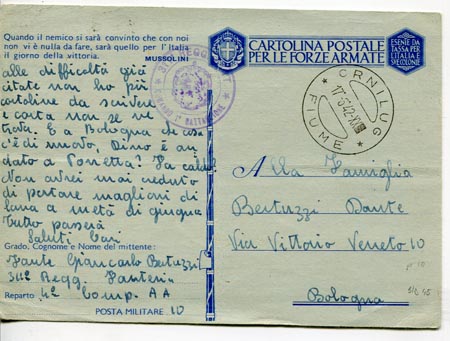 Quando il nemico si sarà convinto che con noi
non vi è nulla da fare, sarà quello per l'Italia
il giorno della vittoria.
MUSSOLINI
alle difficoltà già
citate non ho più
cartoline da scrivere
e carta non se ne
trova. E a Bologna che cosa
c'è di nuovo, Dino è an
dato a Porretta? Fa caldo?
Non avrei mai creduto
di portare maglioni di
lana a metà di giugno
Tutto passerà
Saluti Cari
Grado, Cognome e Nome del mittente:
Fante Giancarlo Bertuzzi
Regg. Fanteria
Reparto 4ª Comp. A A
POSTA MILITARE 10
CARTOLINA POSTALE
PER LE FORZE ARMATE
ESENTE DA
TASSA PER
L'ITALIA
E SUE COLONIE
CRNILUG
FIUME
Alla Famiglia
Bertuzzi Dante
Via Vittorio Veneto 10
Bologna